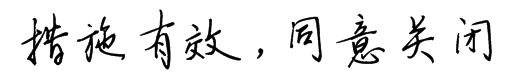 措施有效，同意关闭